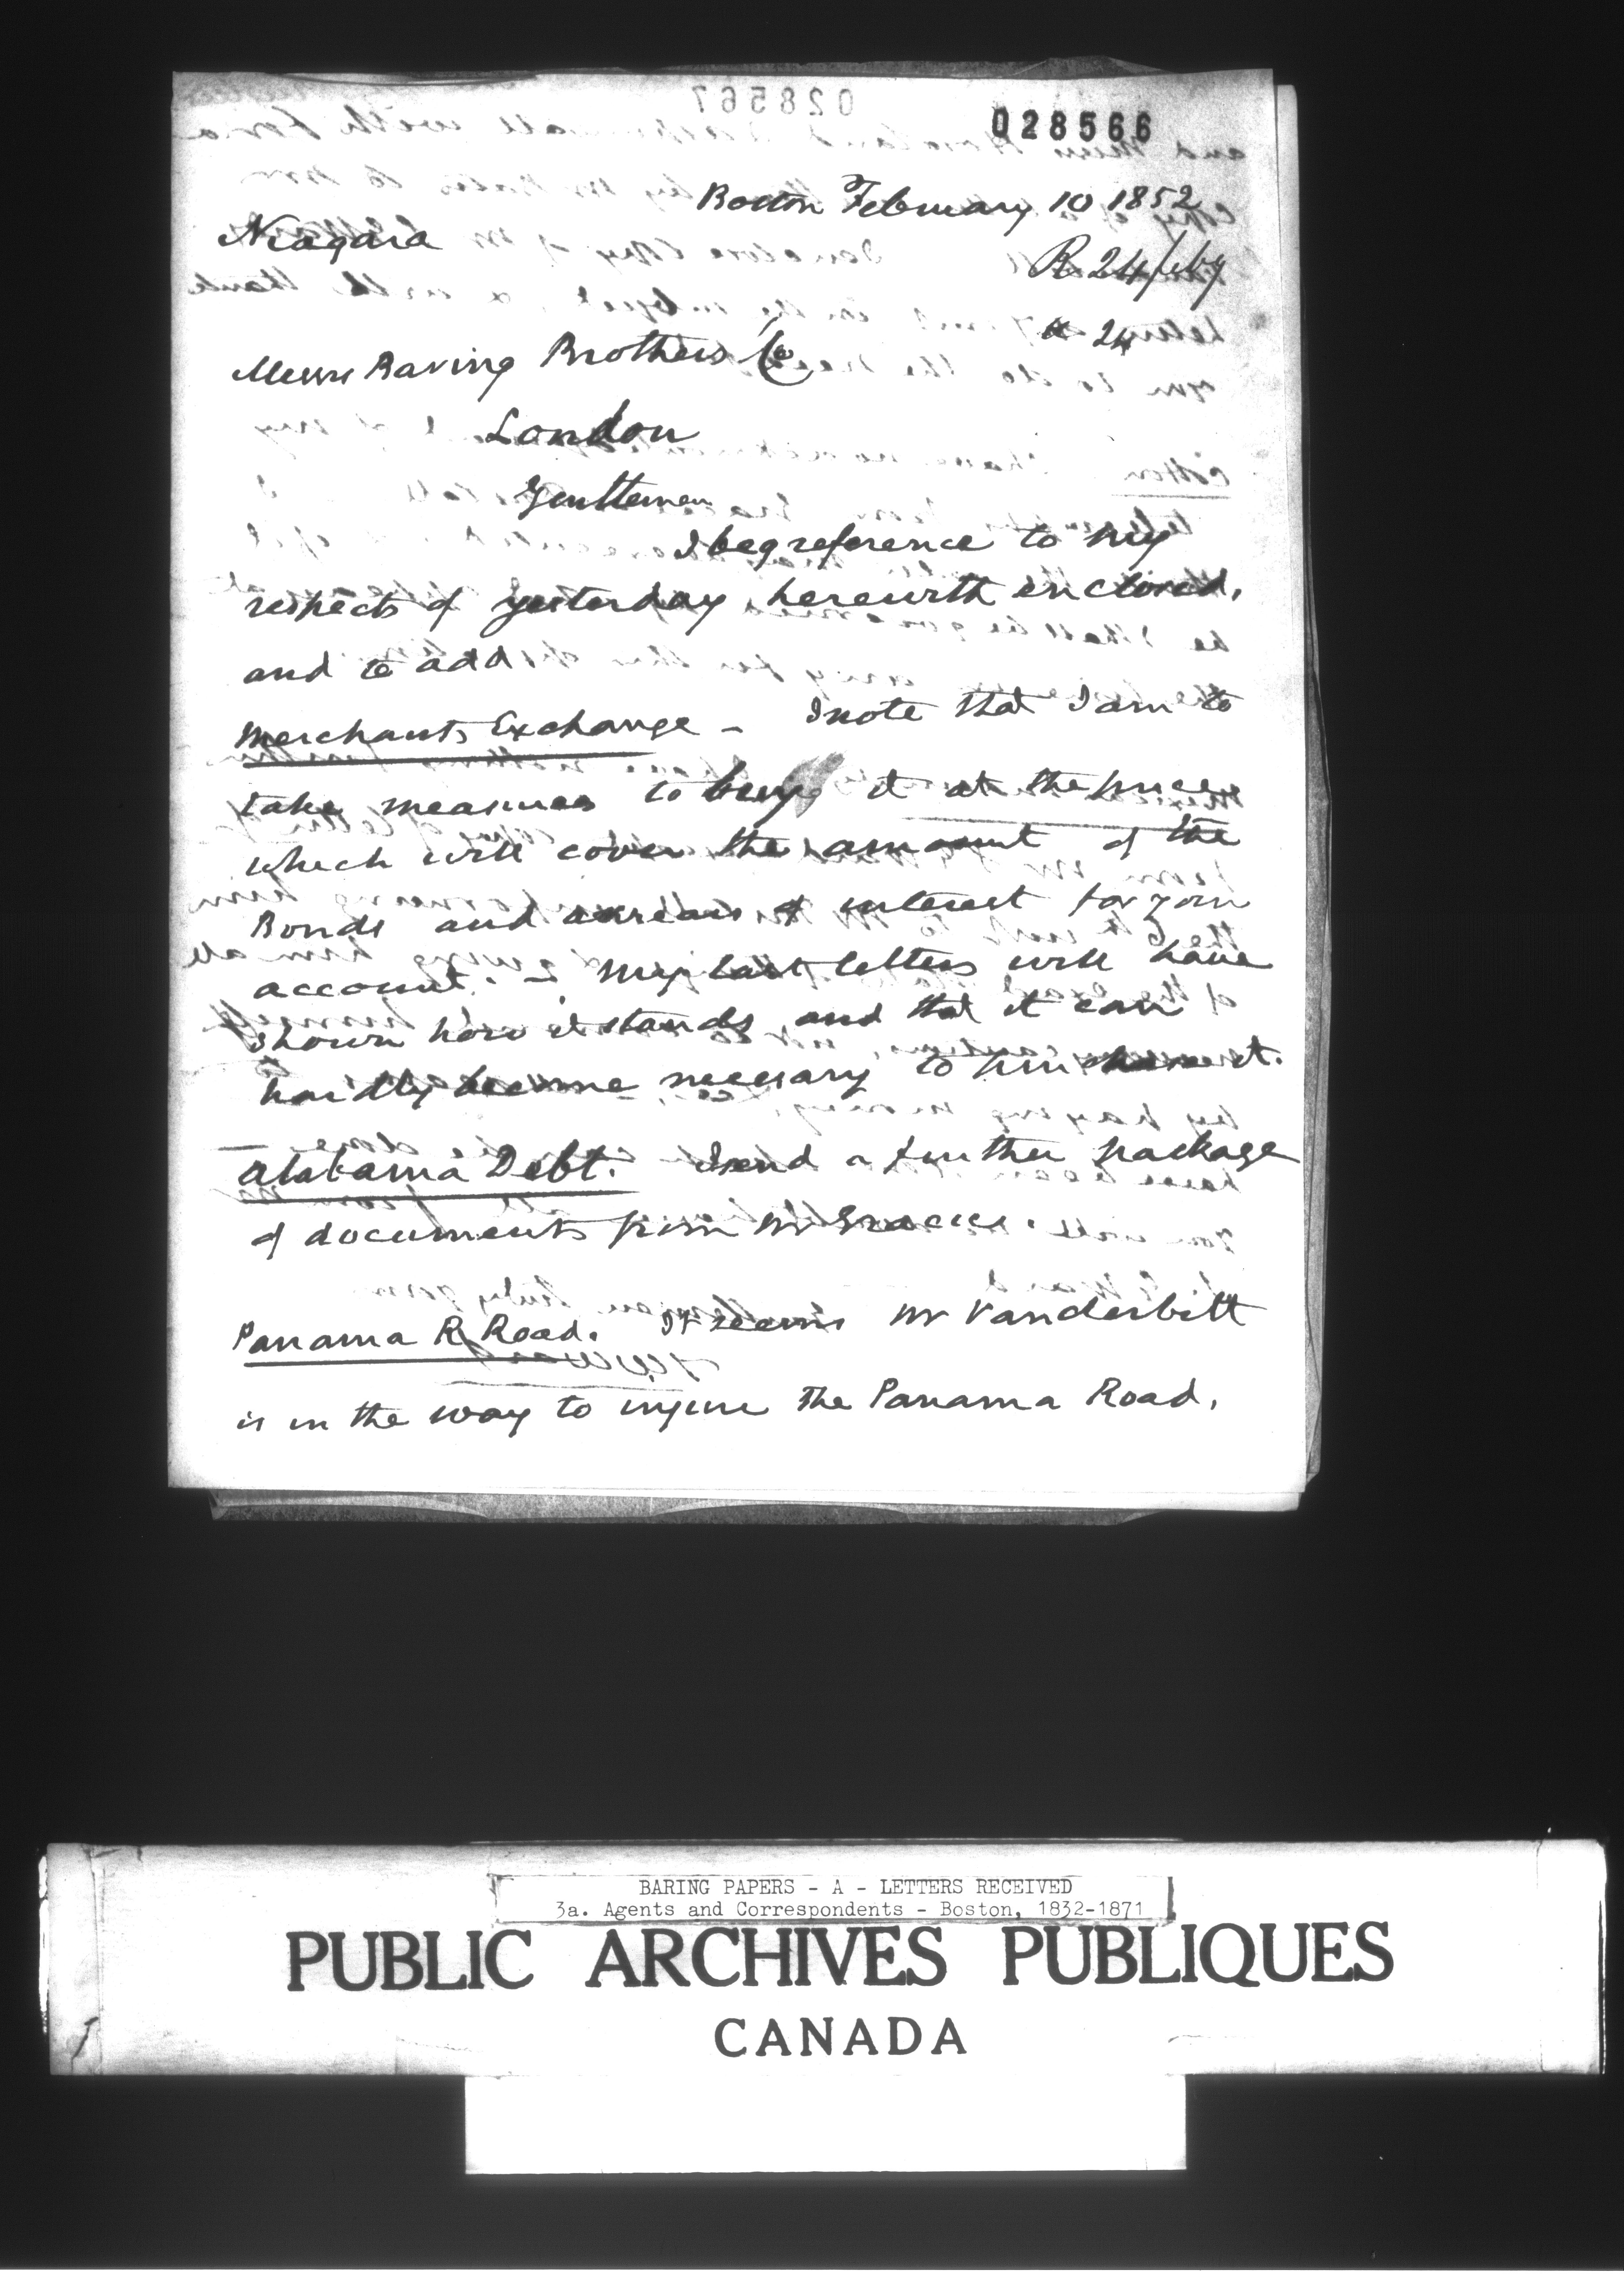 028566
Boston February 10 1852
Niagara
R 24/feby
24
Messrs Baring Brothers & Co
London
Gentlemen
I beg reference to my
respects of yesterday herewith enclosed,
and to add
Merchants Exchange - I note that I am to
take measures to buy it at the price
which will cover the amount of the
Bonds and arrears of interest for your
account. - My last letters will have
shown how it stands, and that it can
hardly become necessary to purchase it.
Alabama Debt. I send a further package
of documents from Mr
Panama R Road. It seems Mr Vanderbilt
is in the way to injure the Panama Road,
BARING PAPERS - A - LETTERS RECEIVED
3a. Agents and Correspondents - Boston, 1832-1871
PUBLIC ARCHIVES PUBLIQUES
CANADA